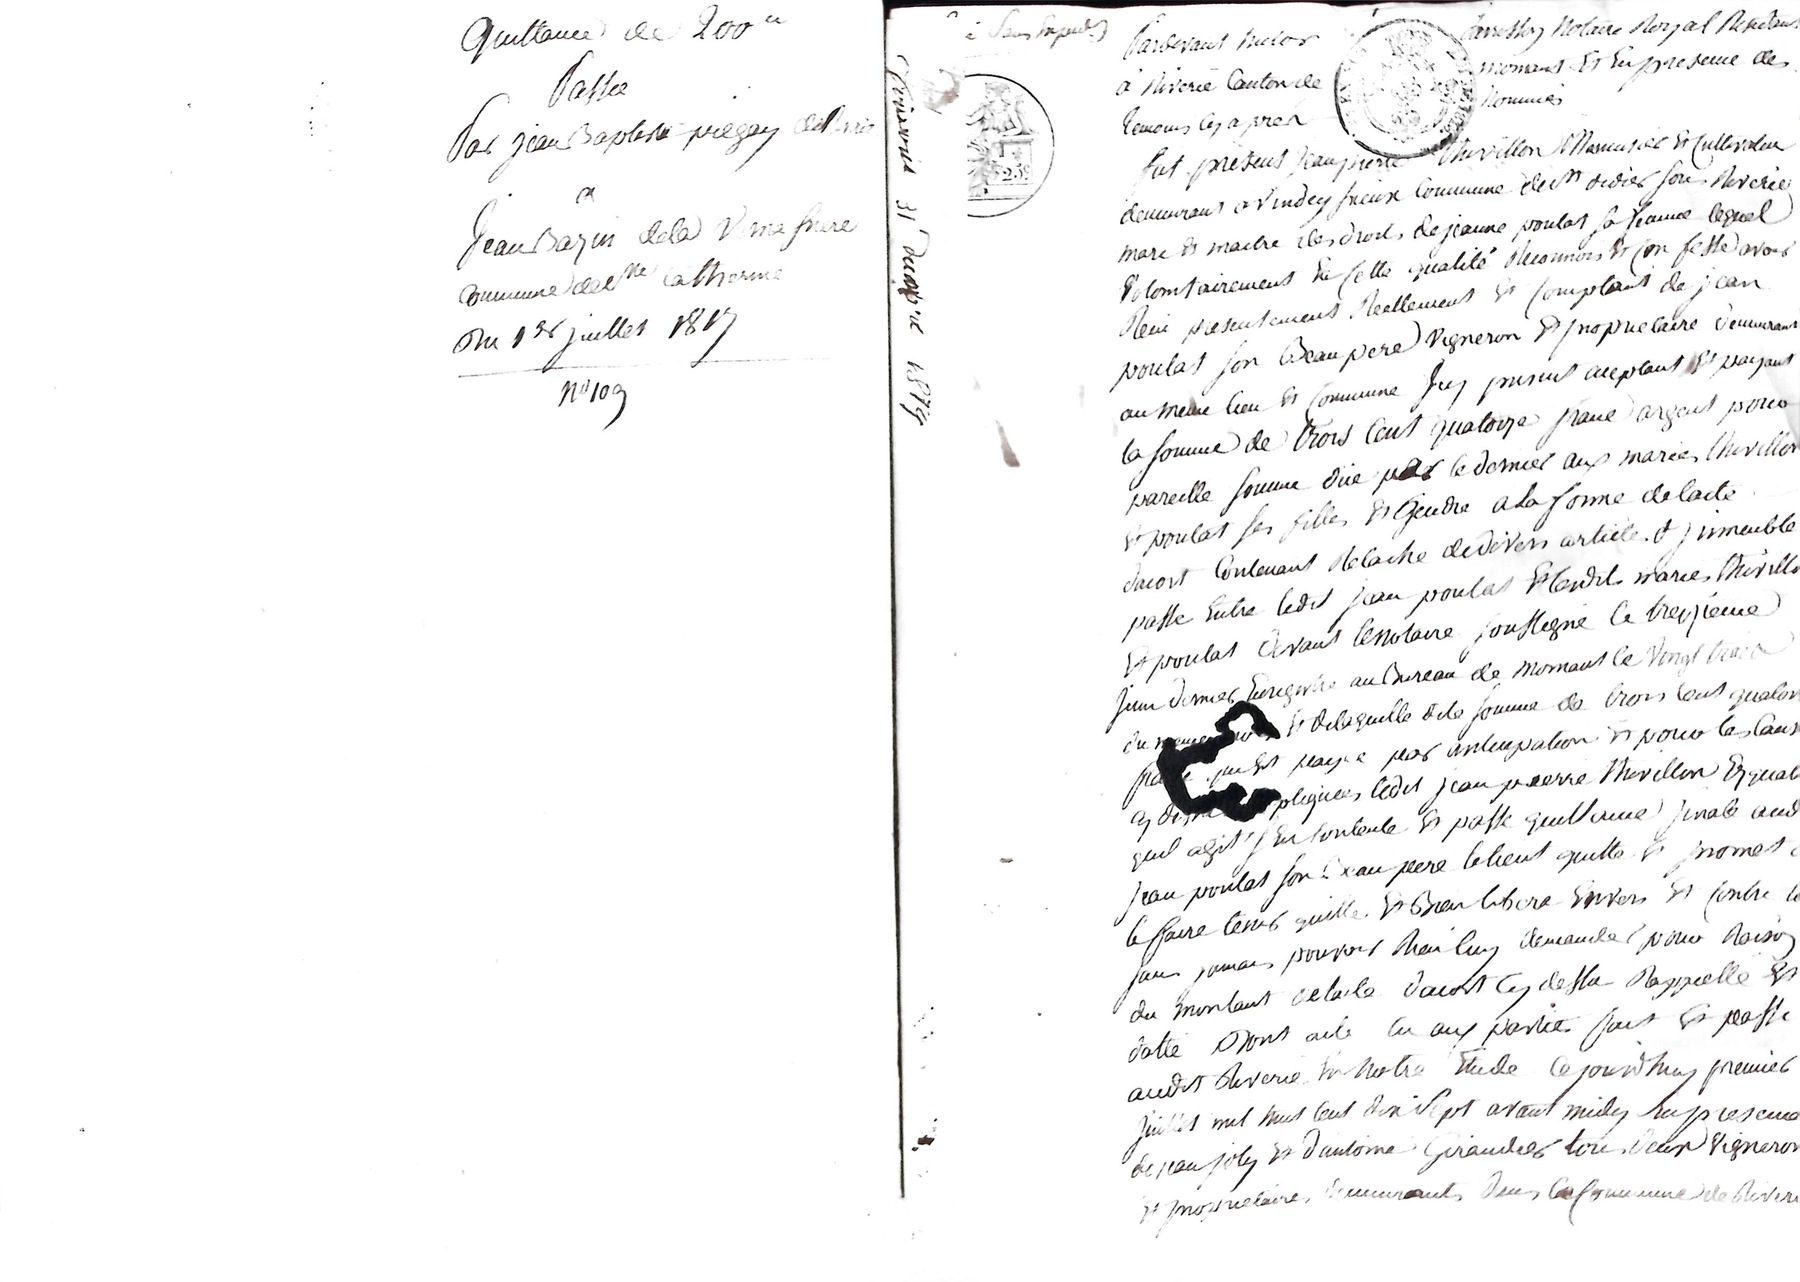 Quittance de 200ᶠ
Passée
Par jean Baptiste piegay
a
jean Bazin de la
commune de Ste Catherine
Du 1er juillet 1817
No 109
31 Decembre 1874
25c
Pardevant Notaire Royal Résidant
à Riverie Canton de Mornant Et En presence des
temoins cy apres Nommés
fut présent jean pierre thivillon Menuisier Et Cultivateur
demeurant a commune de st didier sous Riverie
mari Et maitre des droits de jeanne poulat sa femme lequel
Volontairement En cette qualité Reconnois Et Confesse avoir
Reçu presentement Reellement Et Comptant de jean
poulat son Beaupere Vigneron Et proprietaire demeurant
au meme lieu Et commune Icy present acceptant Et payant
la somme de trois Cent quatorze franc argent pour
pareille somme düe par le dernier aux mariés thivillon
Et poulat ses filles Et Gendre a la forme de lacte
dacort Contenant Relache de divers article d'immeuble
passé Entre ledit jean poulat Et lesdits mariés thivillon
Et poulat devant le Notaire soussigné le treizieme
juin dernier Enregistré au Bureau de Mornant le Vingt trois
du meme Et de laquelle dite somme de trois Cent quatorze
qui Est payé par anticipation Et pour les Causes
cy ledit jean pierre thivillon En qualité
quil agit s'En Contente Et passe quittance finale audit
jean poulat son Beau pere le tient quitte Et promet
le faire tenir quitte Et Bien libéré Envers Et Contre
sans jamais pouvoir Rien luy demander pour Raison
du montant de lacte dacort Cy dessu Rappellé Et
datté Dont acte lu aux parties fait Et passé
audit Riverie En Notre Etude Cejourdhuy premier
juillet mil huit Cent dix sept avant midy En presence
de jean joly Et dantoine Giraudier tous deux Vigneron
Et proprietaires demeurants dans la Commune de Riverie